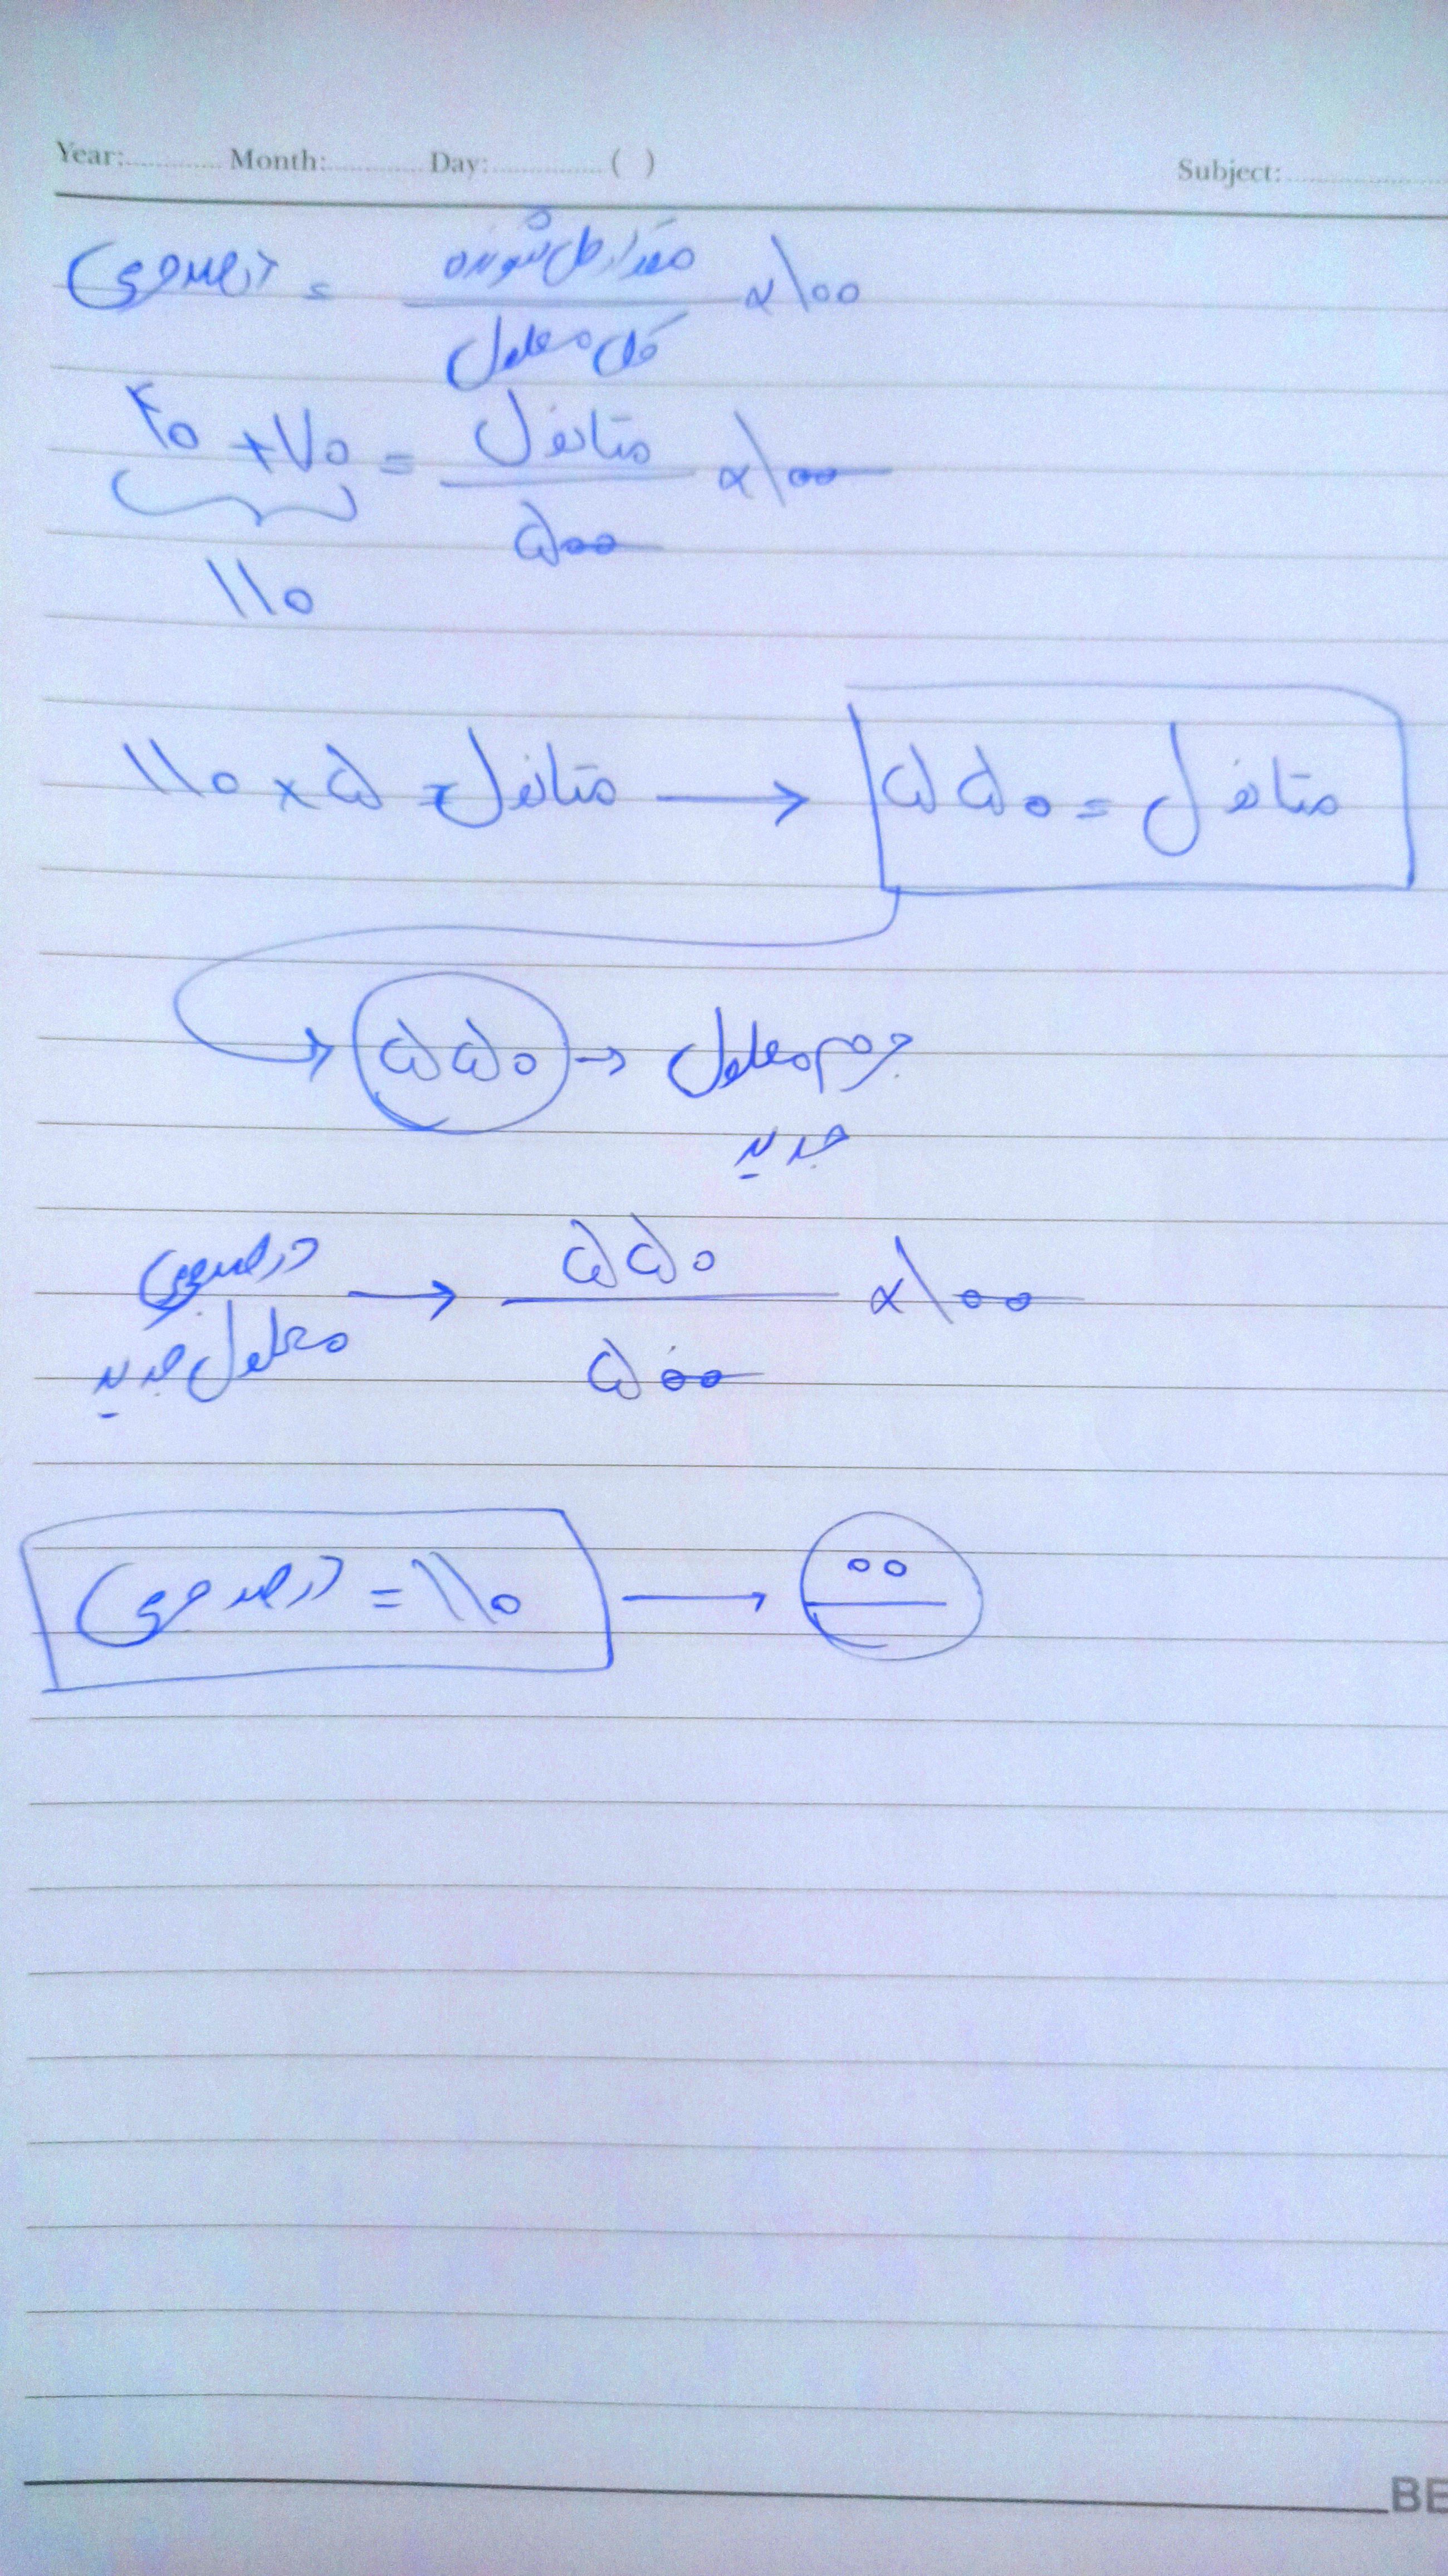 Year: Month: Day: ( ) Subject:
درصد جرمی = مقدار حل شونده / کل محلول × ۱۰۰
۴۰ + ۷۰ = متانول / ۵۰۰ × ۱۰۰
۱۱۰
۱۱۰ × ۵ = متانول → ۵۵۰ = متانول
→ ۵۵۰ → جرم محلول
جدید
درصد جرمی محلول جدید → ۵۵۰ / ۵۰۰ × ۱۰۰
درصد جرمی = ۱۱۰ →
BE